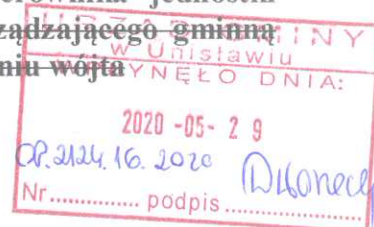 kierownika jednostki
ządzającego gminną
niu wójta
URZĄD GMINY
w Unisławiu
WPŁYNĘŁO DNIA:
2020 -05- 2 9
OP.2124.16.2020
Nr.............. podpis......................